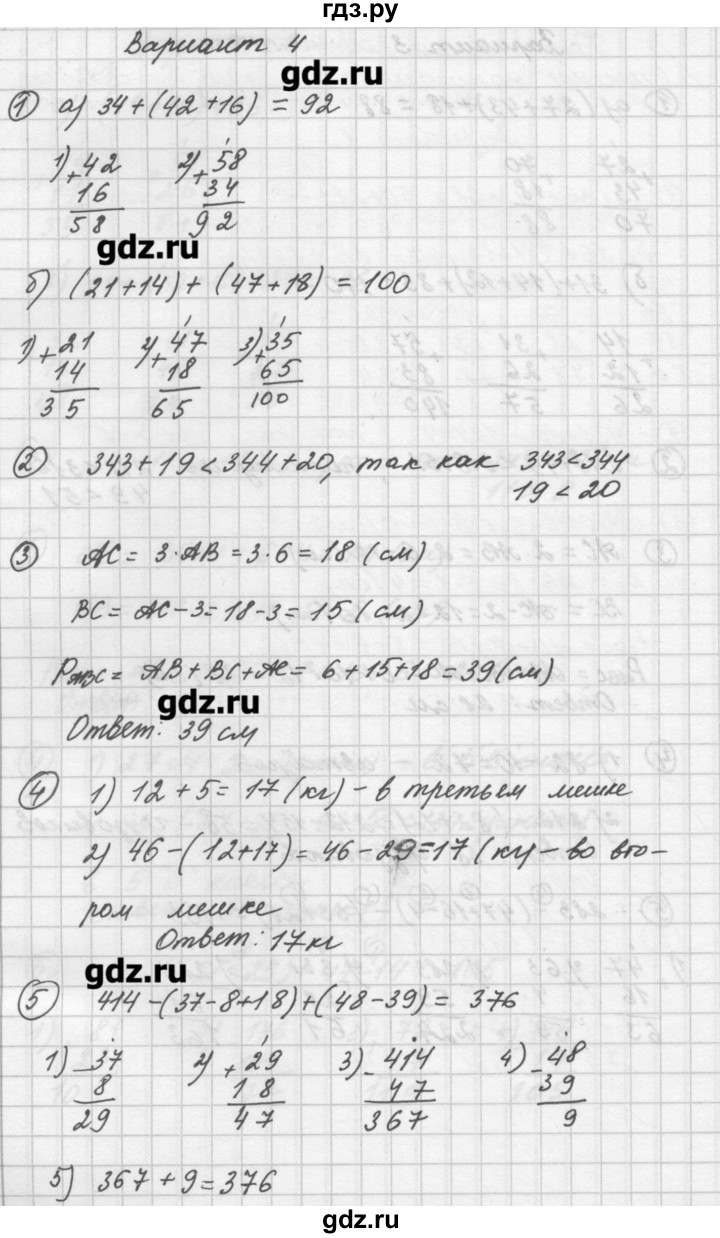 гдз.ру
Вариант 4
gdz.ru
① а) 34+(42+16) = 92
1) +42 2) +58
16 34
58 92
gdz.ru
б) (21+14)+(47+18) = 100
1) +21 2) +47 3) +35
14 18 65
35 65 100
② 343+19<344+20, так как 343<344
19<20
③ AC = 3·AB = 3·6 = 18 (см)
BC = AC-3 = 18-3 = 15 (см)
PABC = AB+BC+AC = 6+15+18 = 39 (см)
gdz.ru
Ответ: 39 см
④ 1) 12+5 = 17 (кг) - в третьем мешке
2) 46-(12+17) = 46-29 = 17 (кг) - во вто-
ром мешке
Ответ: 17 кг
gdz.ru
⑤ 414-(37-8+18)+(48-39) = 376
1) -37 2) +29 3) -414 4) -48
8 18 47 39
29 47 367 9
5) 367+9 = 376
gdz.ru